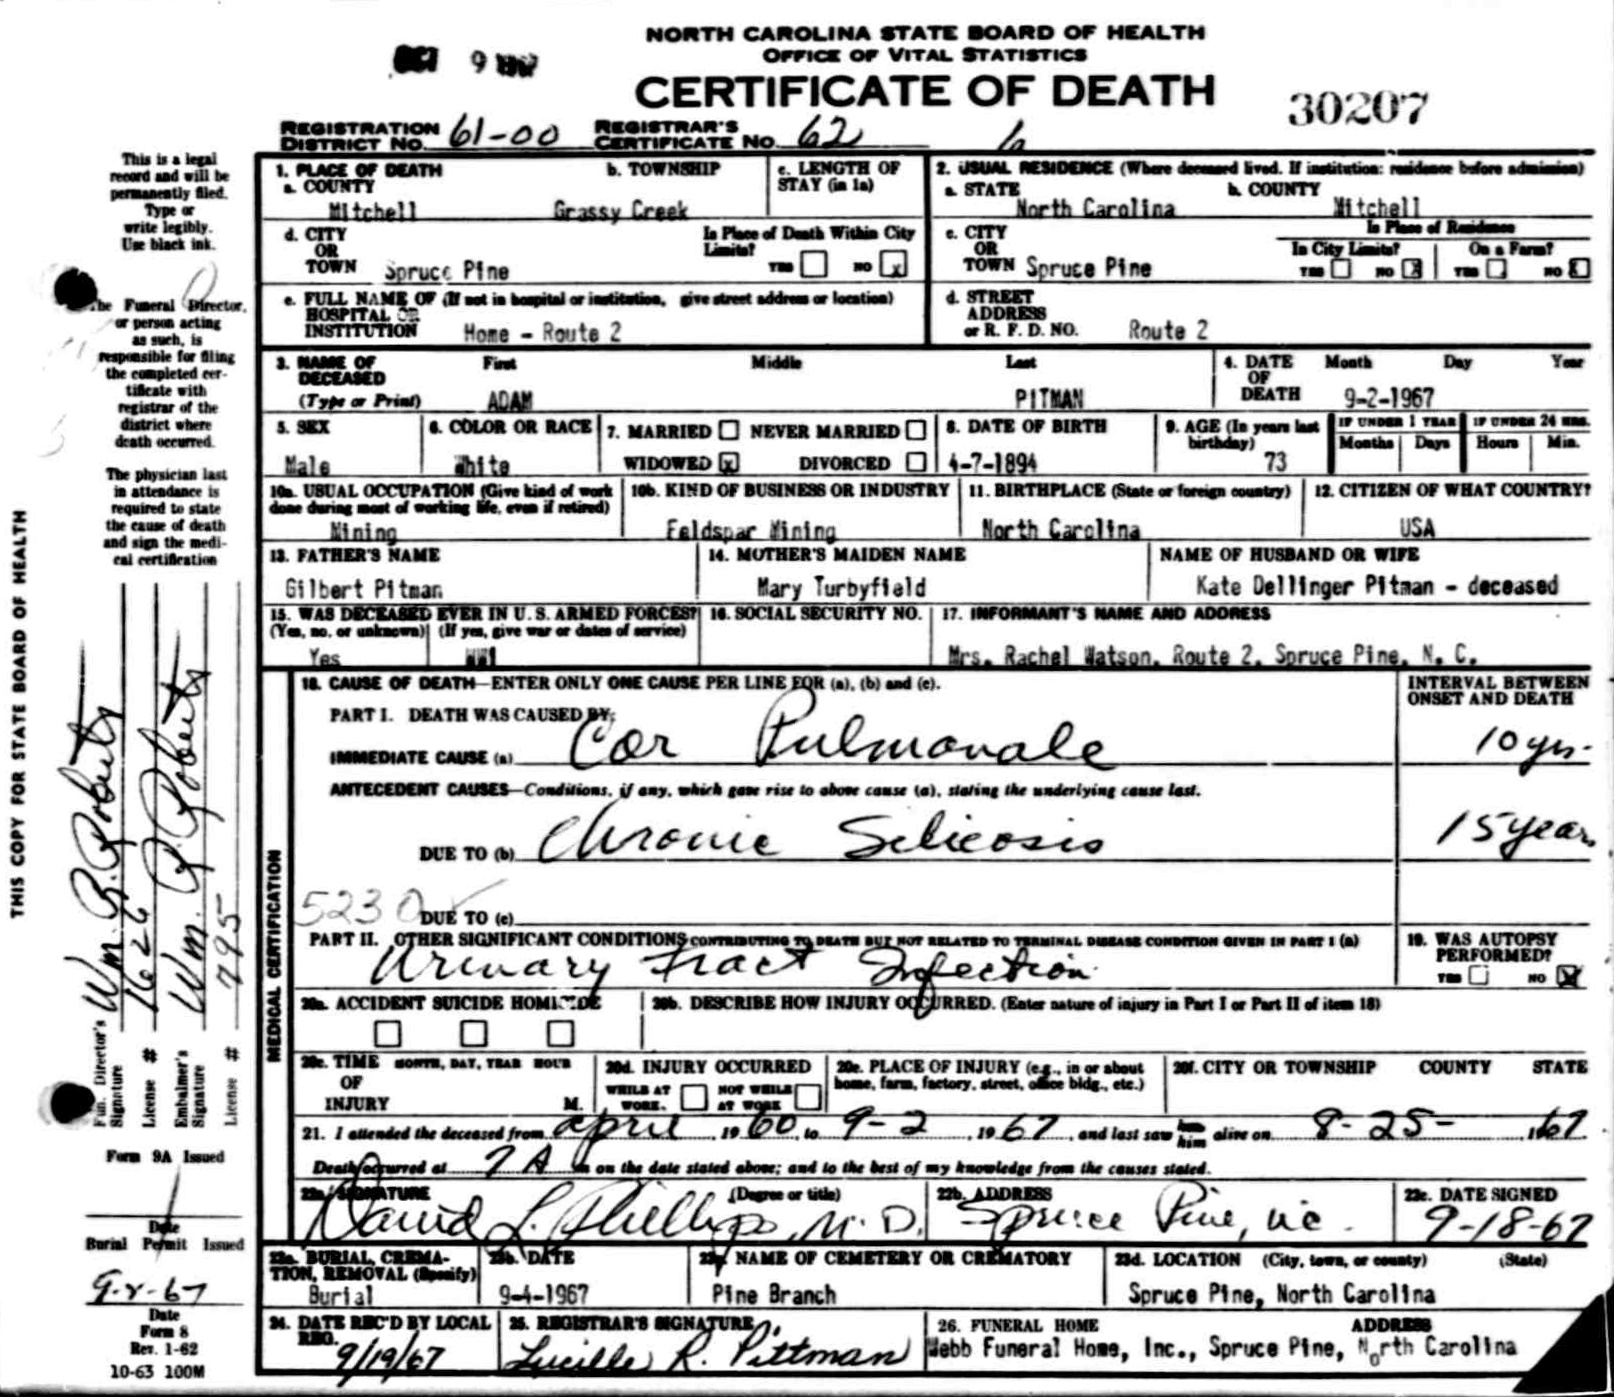 NORTH CAROLINA STATE BOARD OF HEALTH
OFFICE OF VITAL STATISTICS
CERTIFICATE OF DEATH
9
30207
REGISTRATION DISTRICT NO. 61-00 REGISTRAR'S CERTIFICATE NO. 62
THIS COPY FOR STATE BOARD OF HEALTH
This is a legal
record and will be
permanently filed.
Type or
write legibly.
Use black ink.
The Funeral Director,
or person acting
as such, is
responsible for filing
the completed cer-
tificate with
registrar of the
district where
death occurred.
The physician last
in attendance is
required to state
the cause of death
and sign the medi-
cal certification
Fun. Director's Signature Wm. B. Roberts
License # 1626
Embalmer's Signature Wm. B. Roberts
License # 795
Form 9A Issued
Date
Burial Permit Issued
9-2-67
Date
Form 8
Rev. 1-62
10-63 100M
1. PLACE OF DEATH
a. COUNTY Mitchell
b. TOWNSHIP Grassy Creek
c. LENGTH OF STAY (in 1a)
2. USUAL RESIDENCE (Where deceased lived. If institution: residence before admission)
a. STATE North Carolina
b. COUNTY Mitchell
d. CITY OR TOWN Spruce Pine
Is Place of Death Within City Limits?
YES NO x
c. CITY OR TOWN Spruce Pine
Is Place of Residence
In City Limits? YES NO x
On a Farm? YES NO x
e. FULL NAME OF HOSPITAL OR INSTITUTION (If not in hospital or institution, give street address or location)
Home - Route 2
d. STREET ADDRESS or R. F. D. NO. Route 2
3. NAME OF DECEASED (Type or Print)
First Middle Last
ADAM PITMAN
4. DATE OF DEATH Month Day Year
9-2-1967
5. SEX Male
6. COLOR OR RACE White
7. MARRIED NEVER MARRIED
WIDOWED x DIVORCED
8. DATE OF BIRTH 4-7-1894
9. AGE (In years last birthday) 73
IF UNDER 1 YEAR Months Days
IF UNDER 24 HRS. Hours Min.
10a. USUAL OCCUPATION (Give kind of work done during most of working life, even if retired)
Mining
10b. KIND OF BUSINESS OR INDUSTRY
Feldspar Mining
11. BIRTHPLACE (State or foreign country)
North Carolina
12. CITIZEN OF WHAT COUNTRY?
USA
13. FATHER'S NAME
Gilbert Pitman
14. MOTHER'S MAIDEN NAME
Mary Turbyfield
NAME OF HUSBAND OR WIFE
Kate Dellinger Pitman - deceased
15. WAS DECEASED EVER IN U. S. ARMED FORCES?
(Yes, no, or unknown) (If yes, give war or dates of service)
Yes WW1
16. SOCIAL SECURITY NO.
17. INFORMANT'S NAME AND ADDRESS
Mrs. Rachel Watson, Route 2, Spruce Pine, N. C.
MEDICAL CERTIFICATION
18. CAUSE OF DEATH—ENTER ONLY ONE CAUSE PER LINE FOR (a), (b) and (c).
INTERVAL BETWEEN ONSET AND DEATH
PART I. DEATH WAS CAUSED BY:
IMMEDIATE CAUSE (a) Cor Pulmonale 10 yrs.
ANTECEDENT CAUSES—Conditions, if any, which gave rise to above cause (a), stating the underlying cause last.
DUE TO (b) Chronic Silicosis 15 years
5230 DUE TO (c)
PART II. OTHER SIGNIFICANT CONDITIONS CONTRIBUTING TO DEATH BUT NOT RELATED TO TERMINAL DISEASE CONDITION GIVEN IN PART I (a)
Urinary Tract Infection
19. WAS AUTOPSY PERFORMED?
YES NO X
20a. ACCIDENT SUICIDE HOMICIDE
20b. DESCRIBE HOW INJURY OCCURRED. (Enter nature of injury in Part I or Part II of item 18)
20c. TIME OF INJURY MONTH, DAY, YEAR HOUR M.
20d. INJURY OCCURRED
WHILE AT WORK. NOT WHILE AT WORK
20e. PLACE OF INJURY (e.g., in or about home, farm, factory, street, office bldg., etc.)
20f. CITY OR TOWNSHIP COUNTY STATE
21. I attended the deceased from april, 1960, to 9-2, 1967, and last saw her him alive on 8-25-, 1967
Death occurred at 7 A m on the date stated above; and to the best of my knowledge from the causes stated.
22a. SIGNATURE (Degree or title)
David L. Phillips, M. D.
22b. ADDRESS
Spruce Pine, nc.
22c. DATE SIGNED
9-18-67
23a. BURIAL, CREMATION, REMOVAL (Specify)
Burial
23b. DATE
9-4-1967
23c. NAME OF CEMETERY OR CREMATORY
Pine Branch
23d. LOCATION (City, town, or county) (State)
Spruce Pine, North Carolina
24. DATE REC'D BY LOCAL REG.
9/19/67
25. REGISTRAR'S SIGNATURE
Lucille R. Pittman
26. FUNERAL HOME ADDRESS
Webb Funeral Home, Inc., Spruce Pine, North Carolina